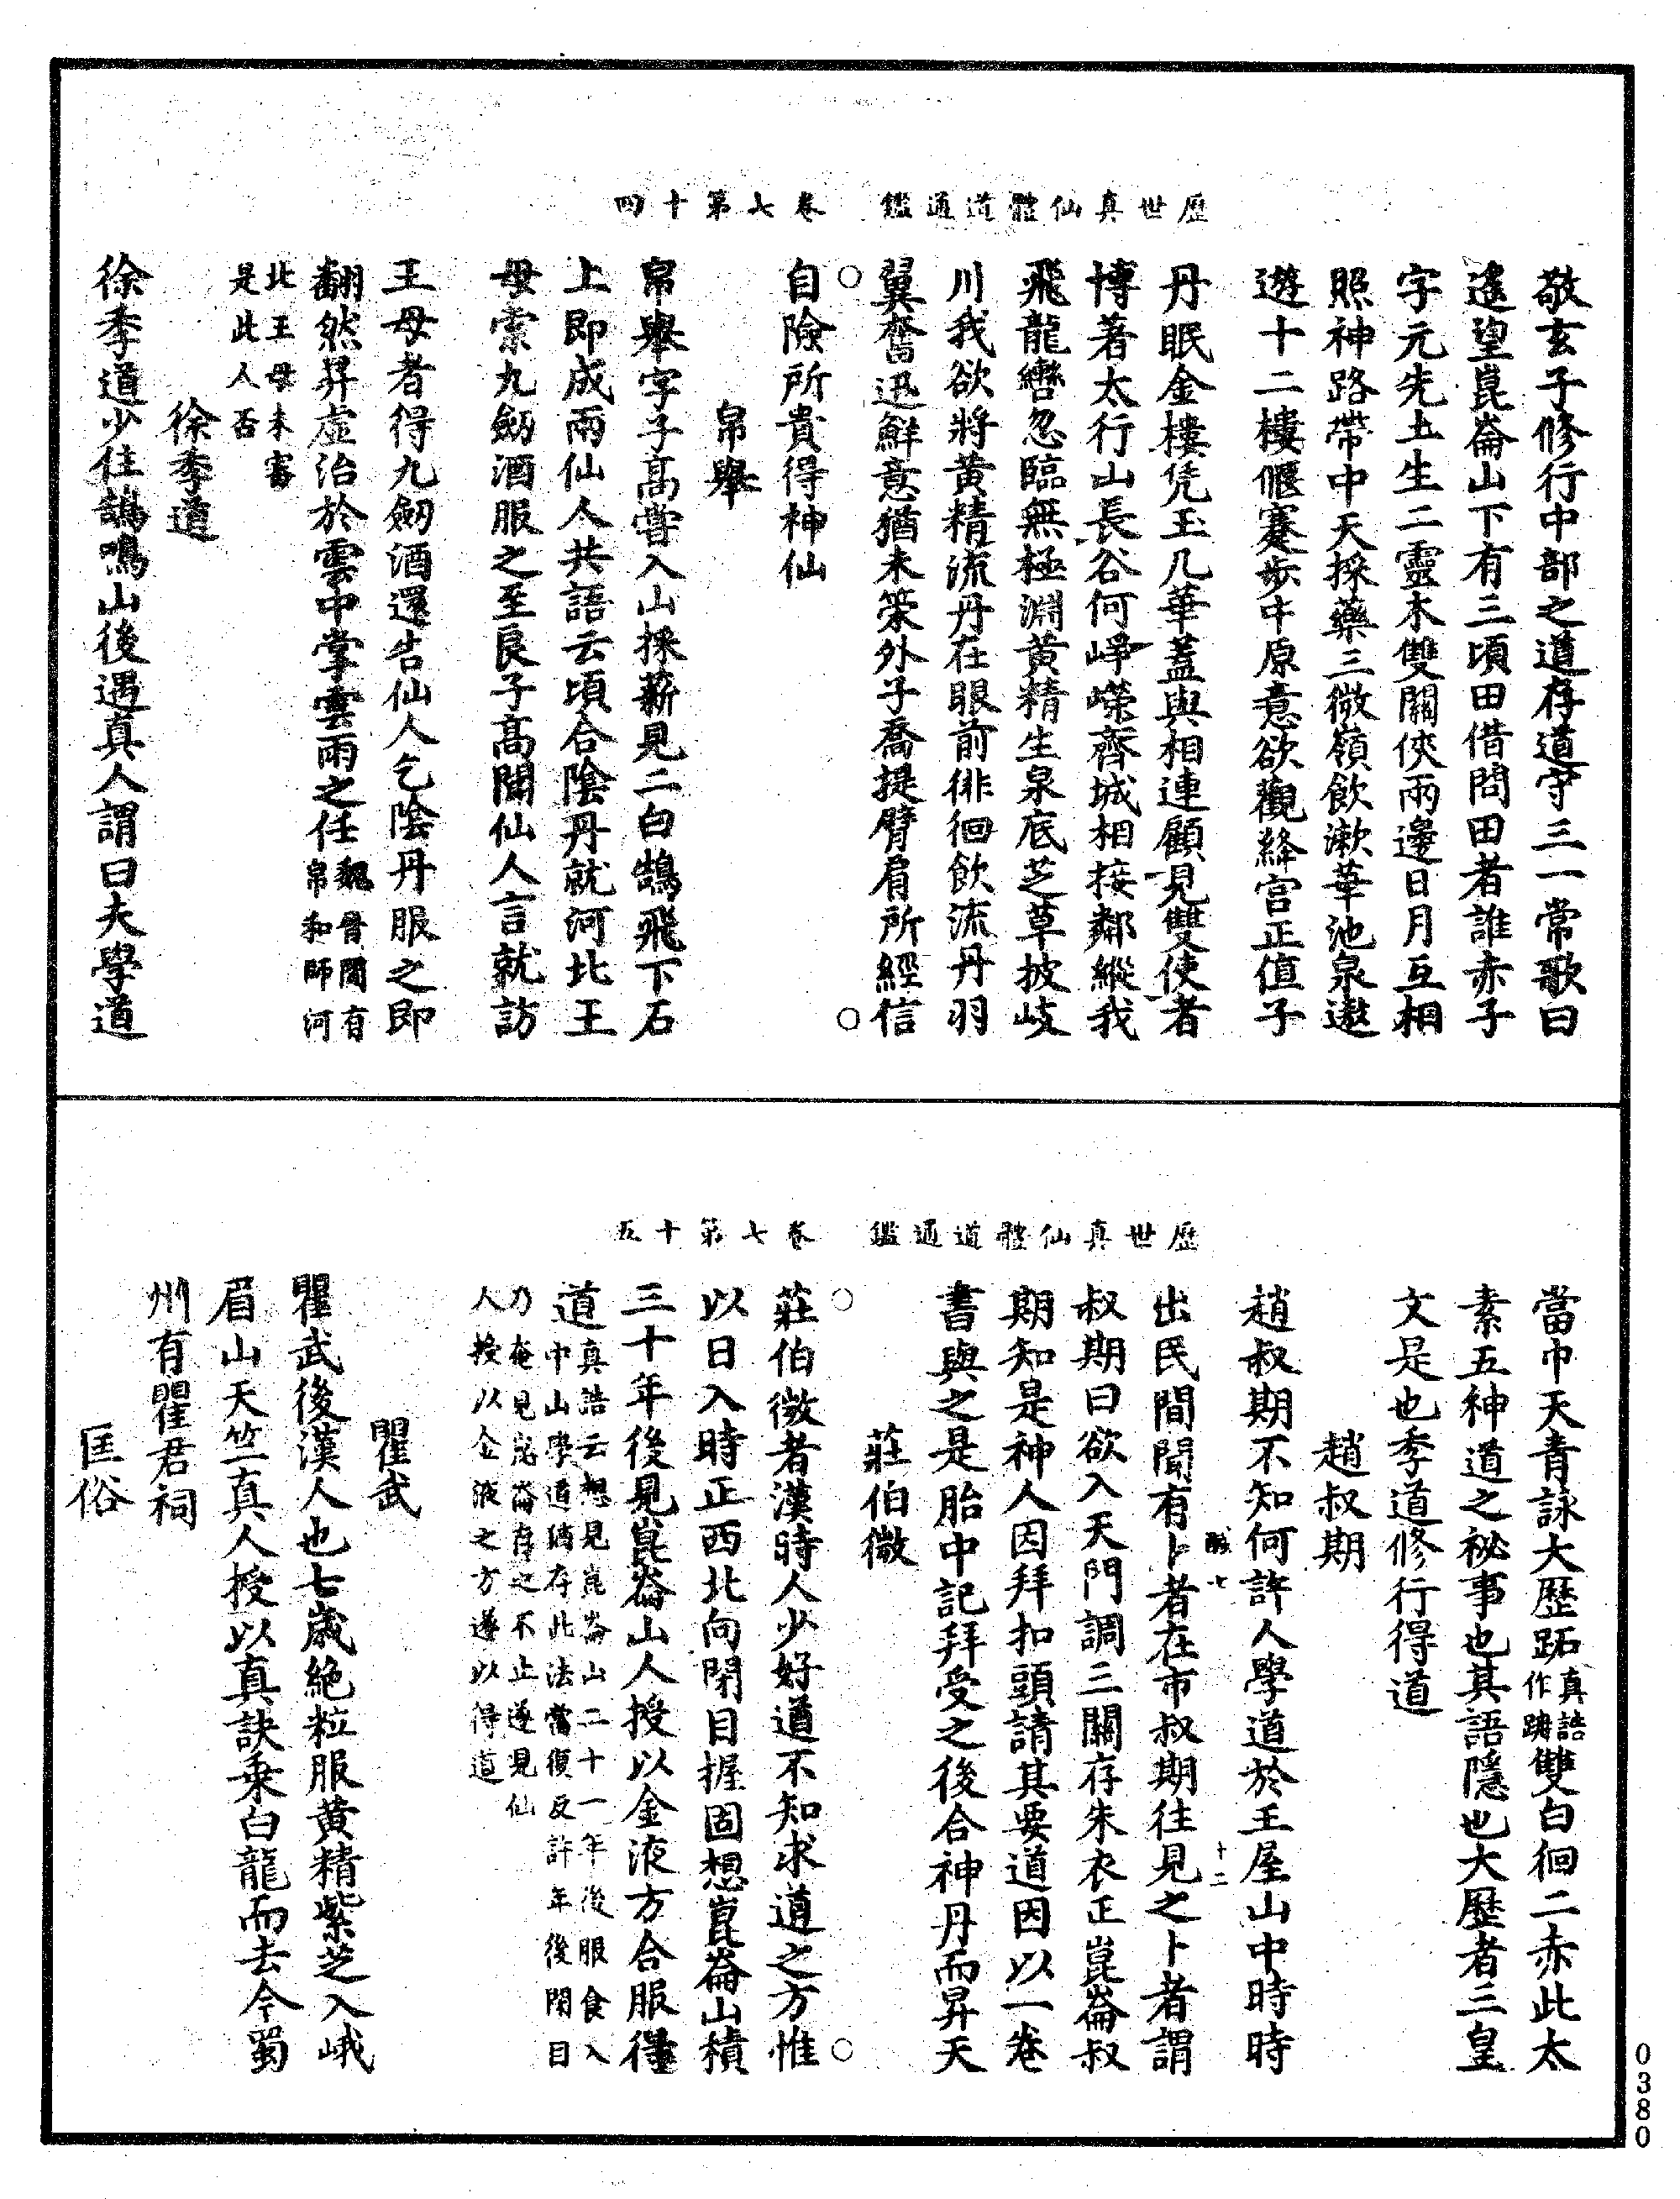 歷世真仙體道通鑑　卷七第十四
敬玄子修行中部之道存道守三一常歌曰
遙望崑崙山下有三頃田借問田者誰赤子
字元先上生二靈木雙闕俠兩邊日月互相
照神路帶中天採藥三微嶺飲漱華池泉遨
遊十二樓偃蹇步中原意欲觀絳宮正值子
丹眠金樓凭玉几華蓋與相連顧見雙使者
博著太行山長谷何崢嶸齊城相接鄰縱我
飛龍轡忽臨無極淵黃精生泉底芝草披岐
川我欲將黃精流丹在眼前徘徊飲流丹羽
翼奮迅鮮意猶未策外子喬提臂肩所經信
自險所貴得神仙
帛舉
帛舉字子高嘗入山採薪見二白鵠飛下石
上即成兩仙人共語云頃合陰丹就河北王
母索九劒酒服之至良子高聞仙人言就訪
王母者得九劒酒還告仙人乞陰丹服之即
翻然昇虛治於雲中掌雲雨之任魏晉間有
帛和師河
北王母未審
是此人否
徐季道
徐季道少住鵠鳴山後遇真人謂曰夫學道
歷世真仙體道通鑑　卷七第十五
當巾天青詠大歷跖真誥
作踊雙白徊二赤此太
素五神道之祕事也其語隱也大歷者三皇
文是也季道修行得道
趙叔期
趙叔期不知何許人學道於王屋山中時時
七　十二
出民間聞有卜者在市叔期往見之卜者謂
叔期曰欲入天門調三關存朱衣正崑崙叔
期知是神人因拜扣頭請其要道因以一卷
書與之是胎中記拜受之後合神丹而昇天
莊伯微
莊伯微者漢時人少好道不知求道之方惟
以日入時正西北向閉目握固想崑崙山積
三十年後見崑崙山人授以金液方合服得
道真誥云想見崑崙山二十一年後服食入
中山學道猶存此法當復反許年後閉目
乃奄見崑崙存之不止遂見仙
人授以金液之方遂以得道
瞿武
瞿武後漢人也七歲絕粒服黃精紫芝入峨
眉山天竺真人授以真訣乘白龍而去今蜀
州有瞿君祠
匡俗
0380